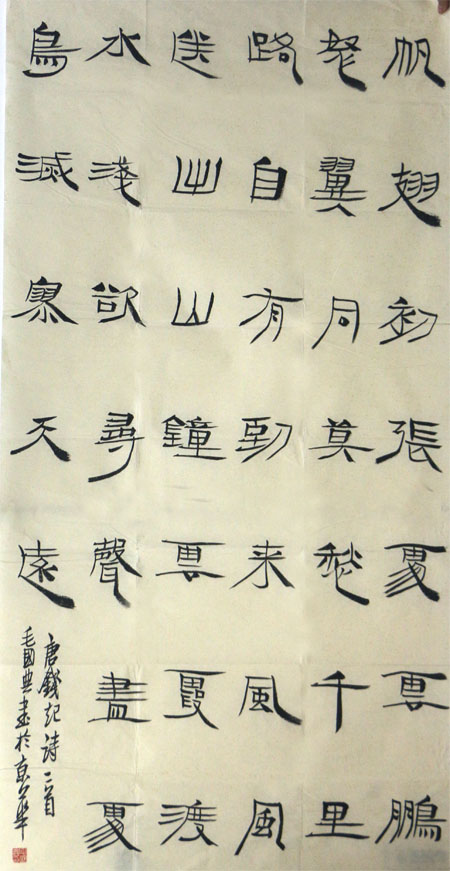 帆翅初張處雲鵬
怒翼同莫愁千里
路自有到来風風
送出山鐘雲霞渡
水淺欲尋聲盡處
鳥滅寥天遠
唐錢起詩二首
毛國典書於京華